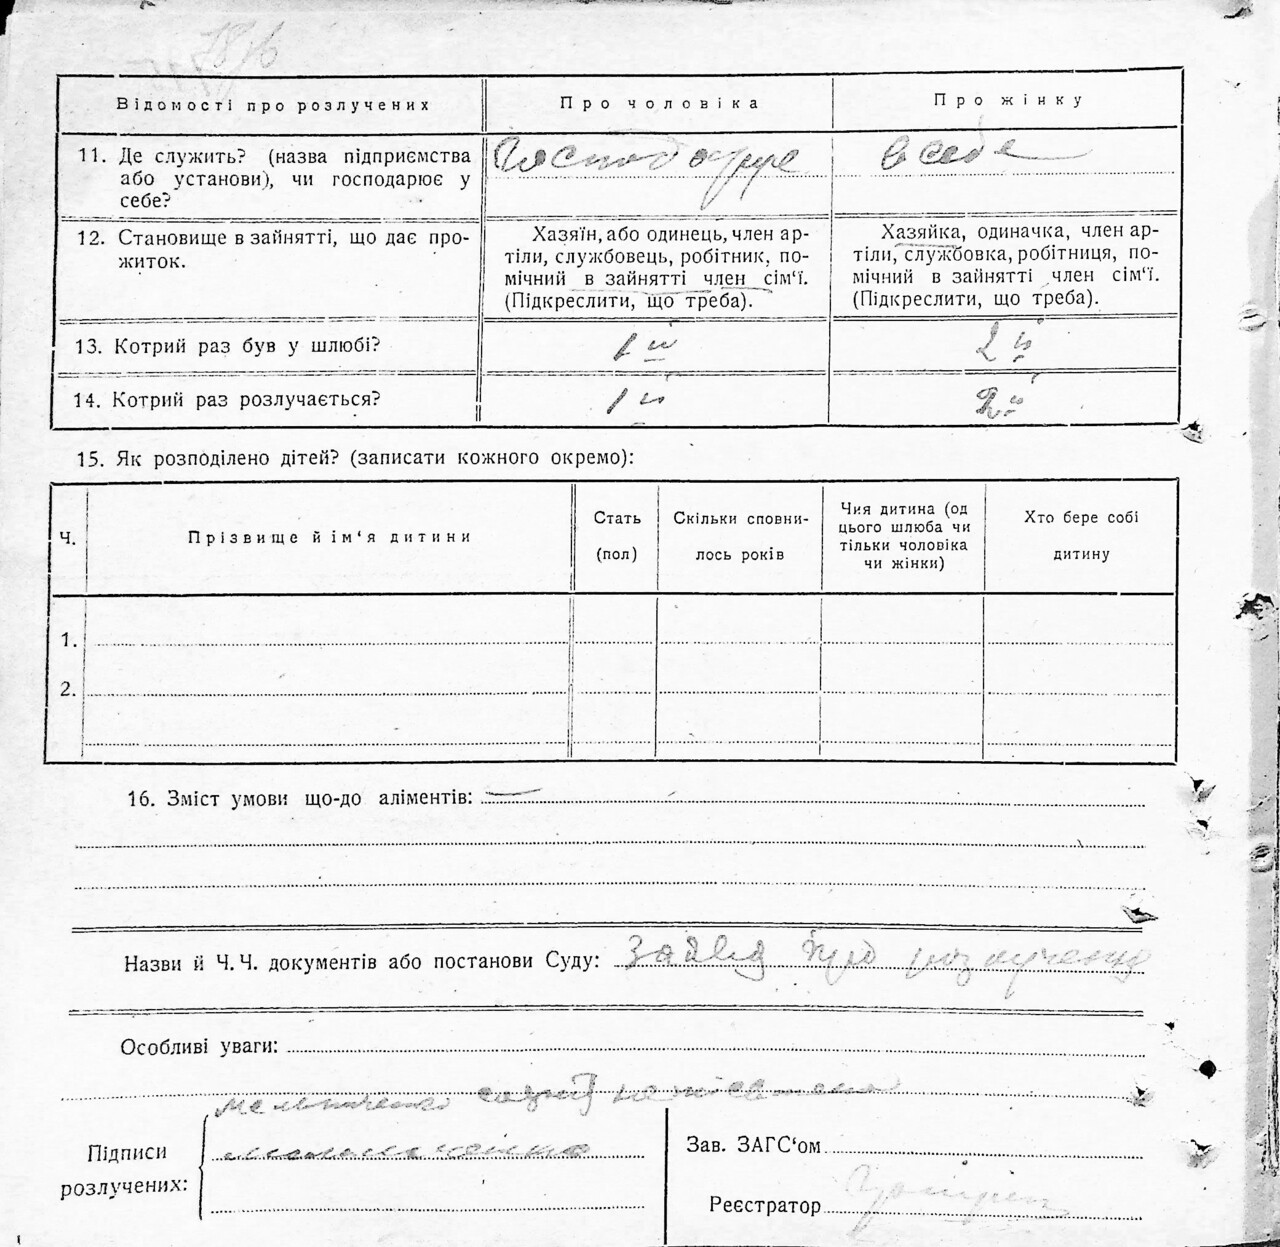 Відомості про розлучених
Про чоловіка
Про жінку
11. Де служить? (назва підприємства
або установи), чи господарює у
себе?
Господарює
в себе
12. Становище в зайнятті, що дає про-
житок.
Хазяїн, або одинець, член ар-
тіли, службовець, робітник, по-
мічний в зайнятті член сім‘ї.
(Підкреслити, що треба).
Хазяйка, одиначка, член ар-
тіли, службовка, робітниця, по-
мічний в зайнятті член сім‘ї.
(Підкреслити, що треба).
13. Котрий раз був у шлюбі?
1й
2й
14. Котрий раз розлучається?
1й
2й
15. Як розподілено дітей? (записати кожного окремо):
Ч.
Прізвище й ім‘я дитини
Стать
(пол)
Скільки сповни-
лось років
Чия дитина (од
цього шлюба чи
тільки чоловіка
чи жінки)
Хто бере собі
дитину
1.
2.
16. Зміст умови що-до аліментів: —
Назви й Ч. Ч. документів або постанови Суду: Заява про розлучення
Особливі уваги:
Підписи
розлучених:
Зав. ЗАГС‘ом
Реєстратор